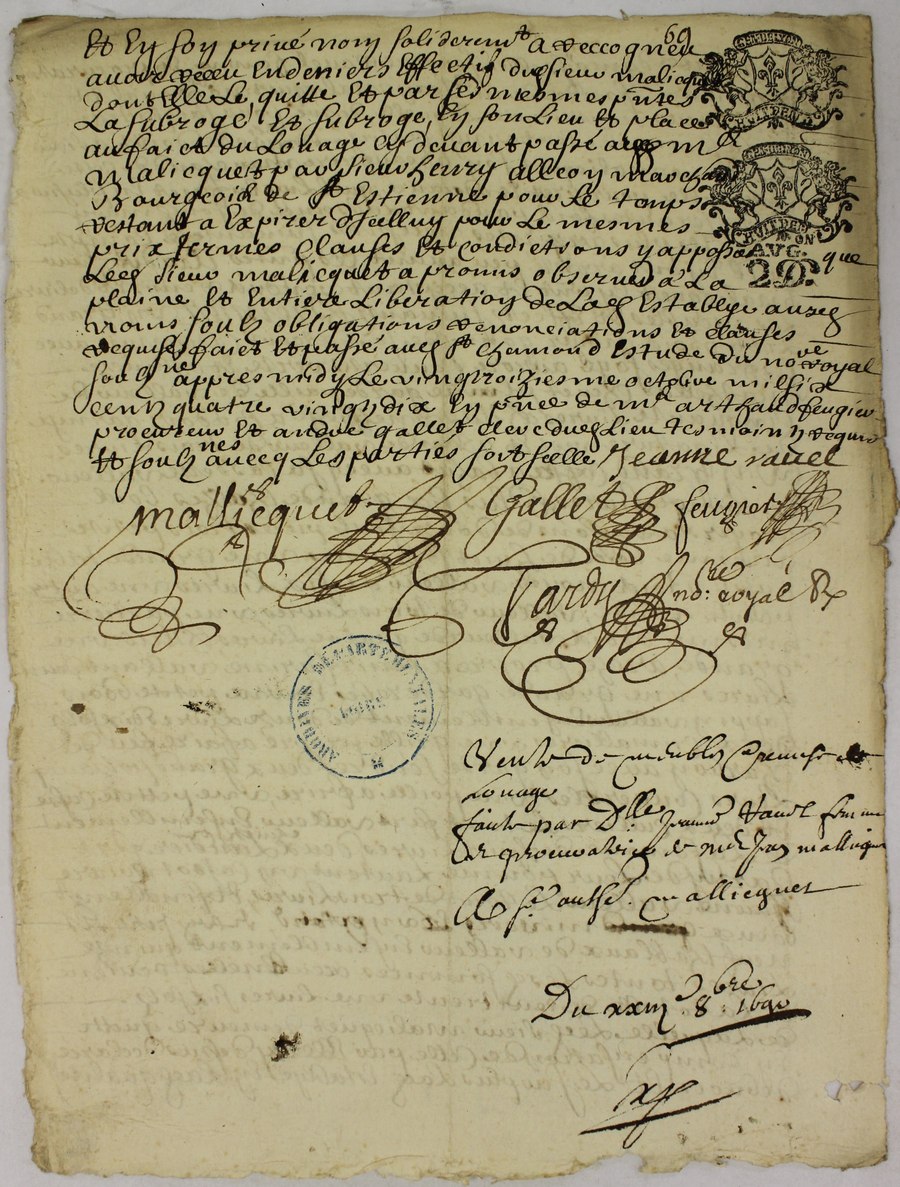 69
Et En son privé nom solideremt A Reccogneu
avoir Receu En deniers Effectifs dud sieur malicquet
dont Elle Le quitte Et par ses mesmes pntes
La subroge Et subroge En son Lieu Et place
au faict du Louage Cy devant passé aud mr
malicquet par sieur henry alleon marchand
Bourgeois de st Estienne pour Le temps
Restant a Expirer d'Icelluy pour Le mesmes
prix fermes Clauses Et Condictions y apposées que
Led sieur malicquet a promis observer à La
plaine Et Entiere Liberation de Lad
soubz obligations Renonciations Et clauses
Requises faict Et passé aud st chamond Estude du nore Royal
soubzne appres midy Le vingtroiziesme octobre mil six
centz quatre vingtz dix En pnce de mr arthaud feugier
procureur Et andré gallet clerc dud Lieu tesmoingtz Requis
Et soubznes avecq Les parties sort scelle Jeanne ravel
mallicquet
Gallet
feugier
Tardy nore royal R
ARCHIVES DÉPARTEMENTALES
LOIRE
GEN. DE LYON
HUIT DEN
GEN. DE LYON
HUIT DEN
AUG. ON
2 D.
Vente de meubles & remise de
Louage
faite par Dlle Jeanne Ravel femme
& procuratrice de mr Jean mallicquet
A sr anthe mallicquet
Du xxiije 8bre 1690